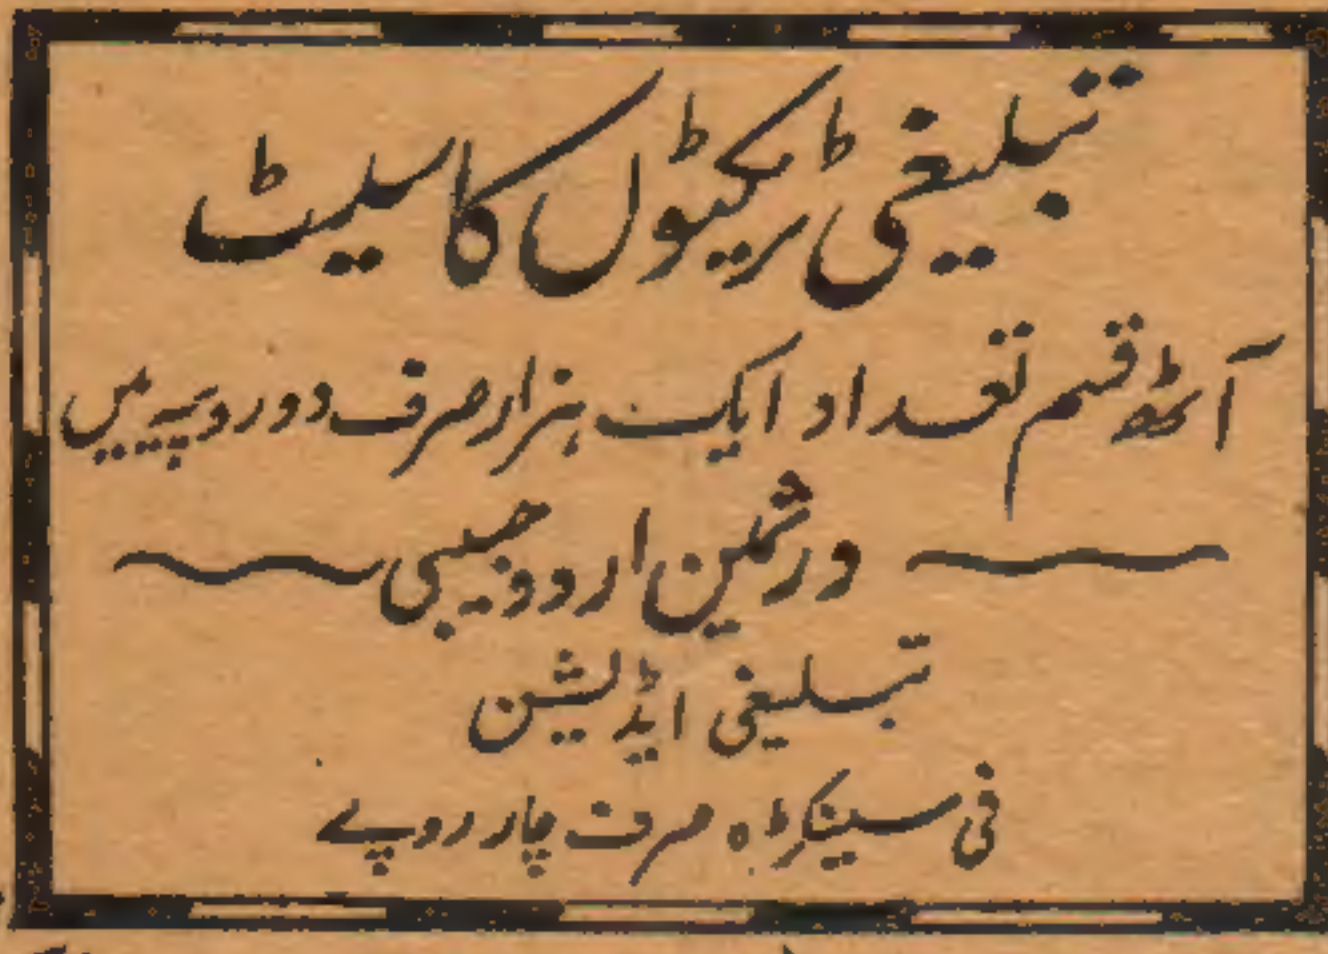 تبلیغی ٹریکٹوں کا سیٹ
آٹھ قسم تعداد ایک ہزار صرف دو روپیہ میں
درثمین اردو جیبی
تبلیغی ایڈیشن
فی سینکڑہ صرف چار روپے